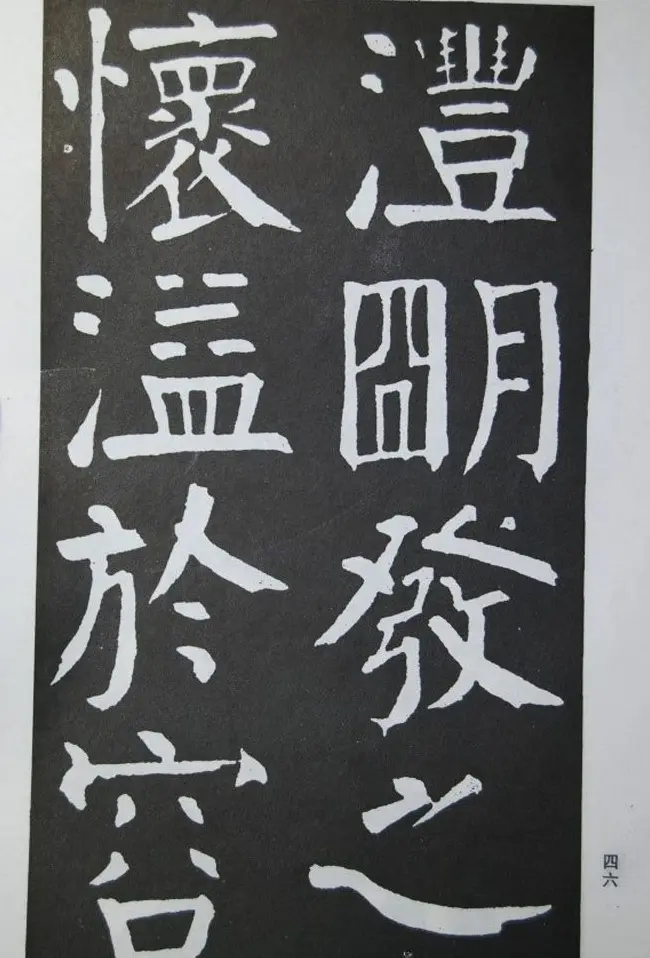 澧朙發之
懷溢於容
四六